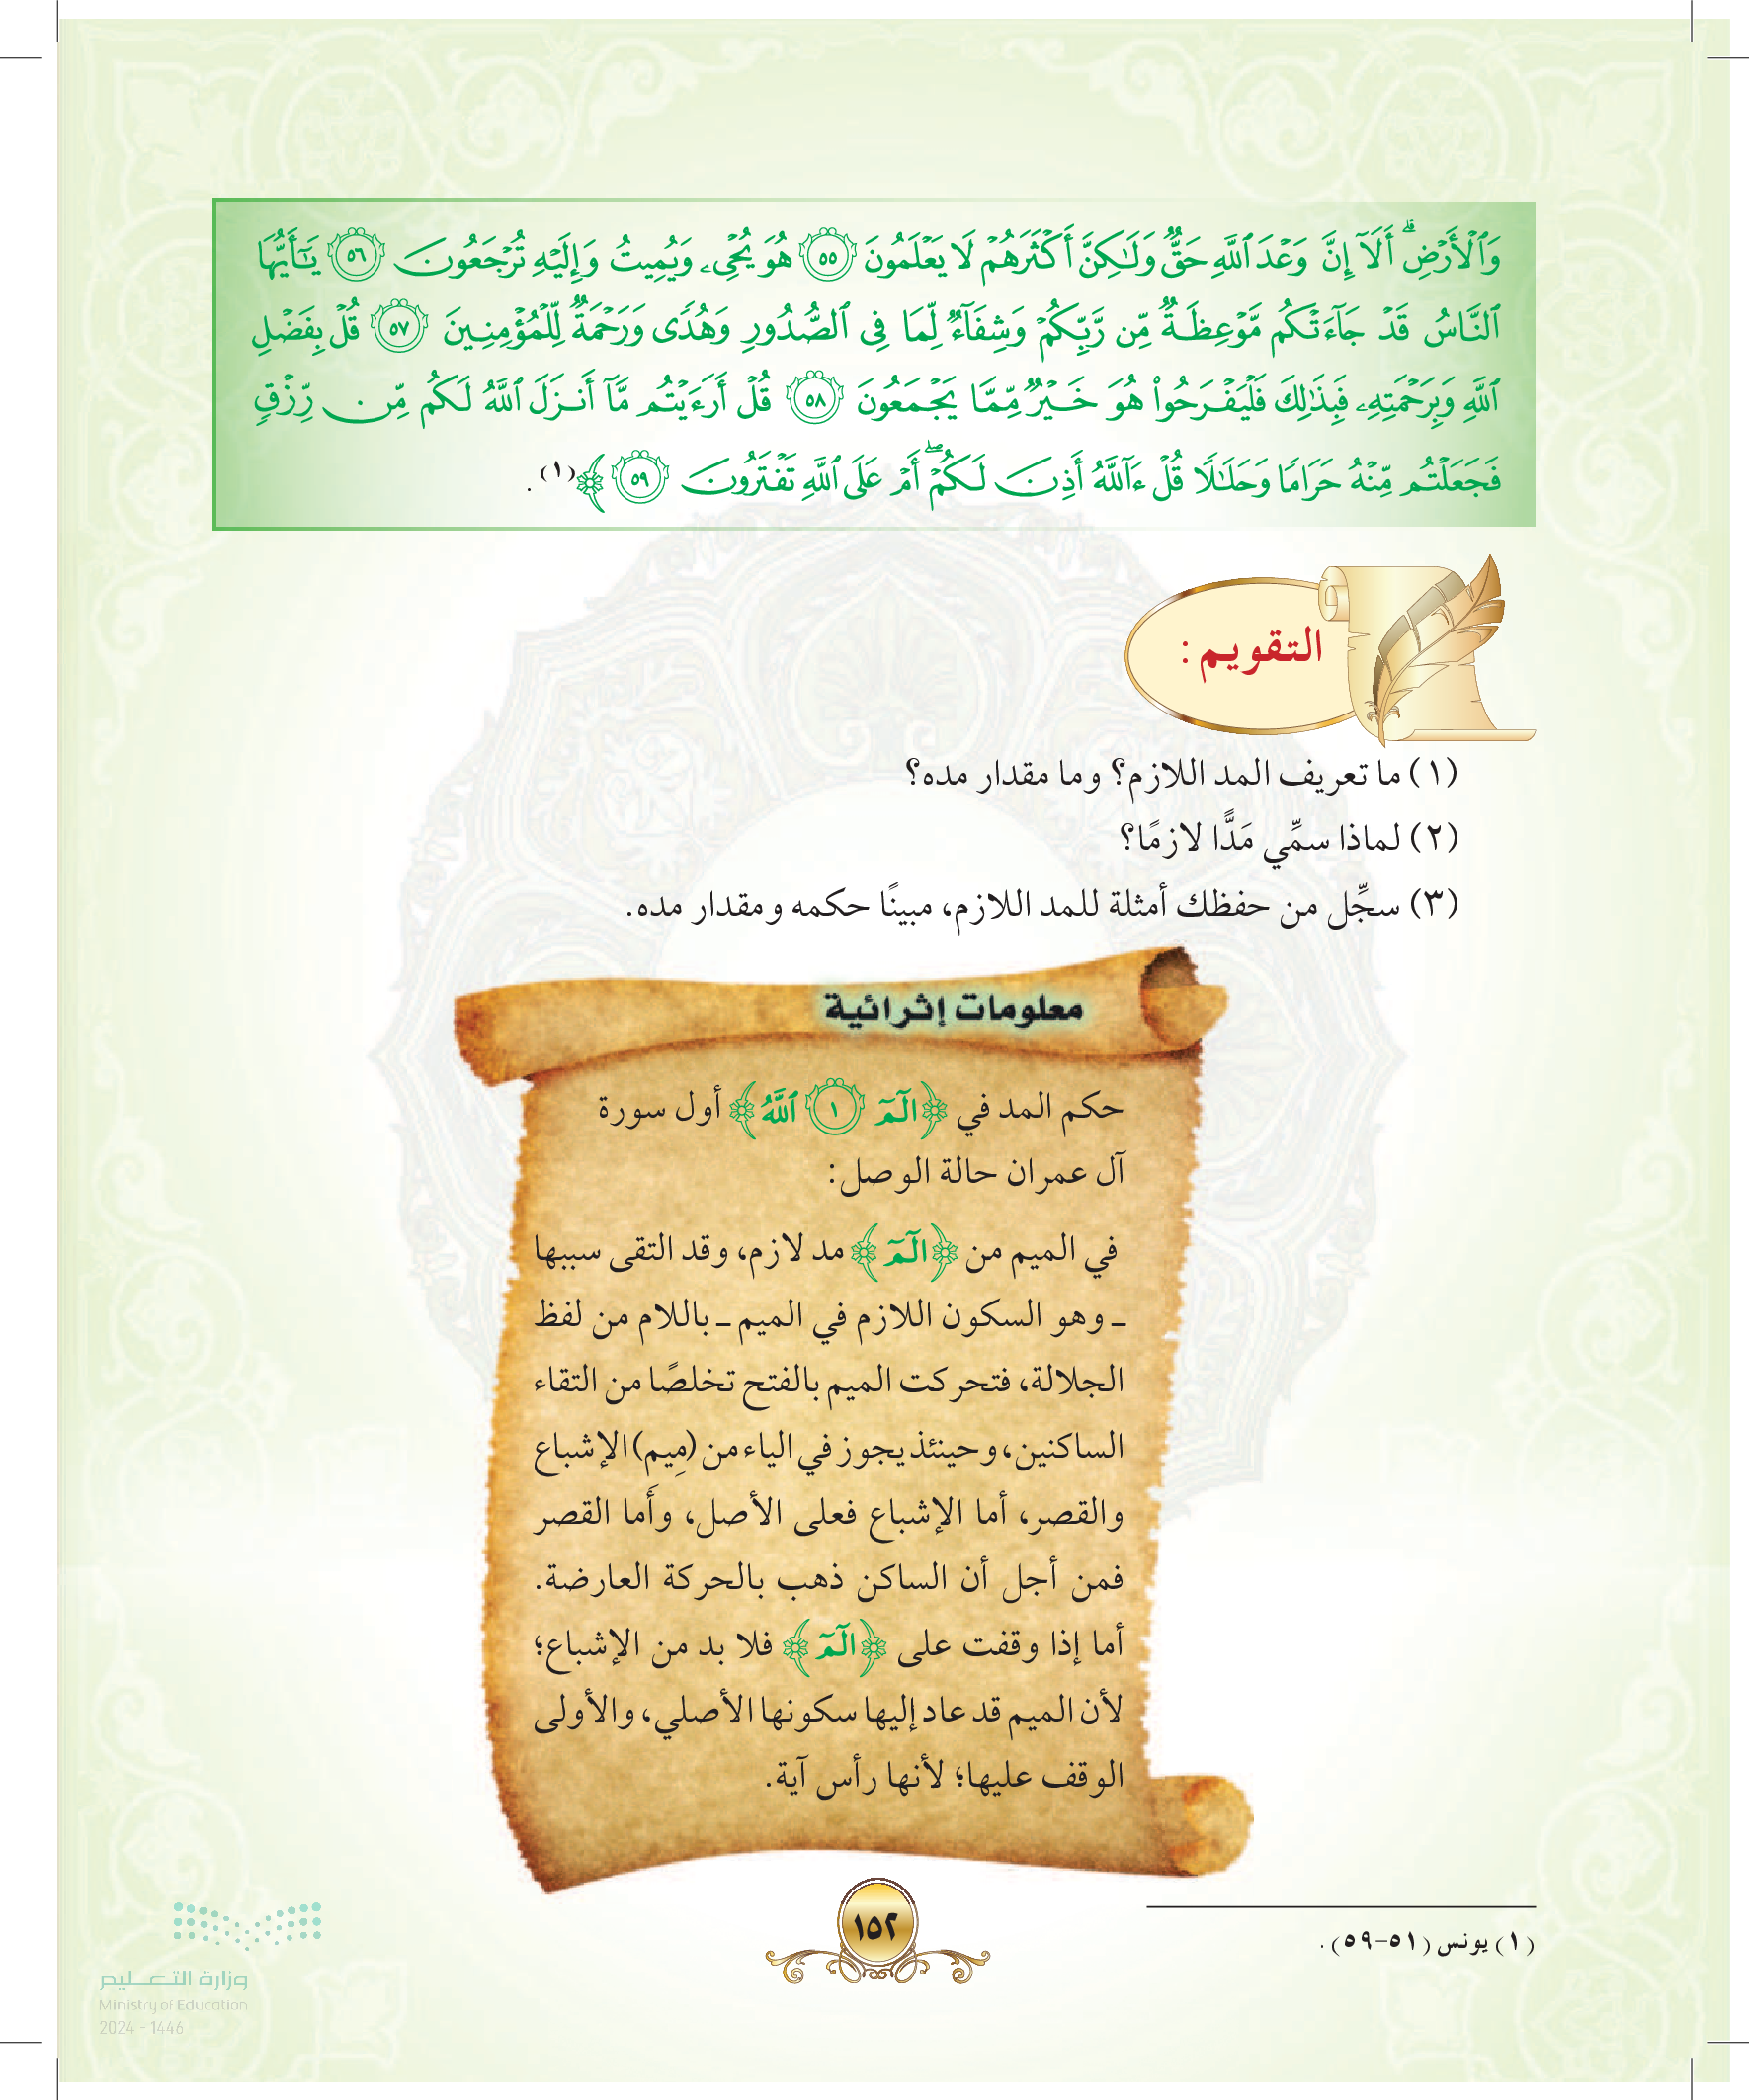 وَٱلْأَرْضِۗ أَلَآ إِنَّ وَعْدَ ٱللَّهِ حَقٌّ وَلَٰكِنَّ أَكْثَرَهُمْ لَا يَعْلَمُونَ ٥٥ هُوَ يُحْىِۦ وَيُمِيتُ وَإِلَيْهِ تُرْجَعُونَ ٥٦ يَٰٓأَيُّهَا
ٱلنَّاسُ قَدْ جَآءَتْكُم مَّوْعِظَةٌ مِّن رَّبِّكُمْ وَشِفَآءٌ لِّمَا فِى ٱلصُّدُورِ وَهُدًى وَرَحْمَةٌ لِّلْمُؤْمِنِينَ ٥٧ قُلْ بِفَضْلِ
ٱللَّهِ وَبِرَحْمَتِهِۦ فَبِذَٰلِكَ فَلْيَفْرَحُوا۟ هُوَ خَيْرٌ مِّمَّا يَجْمَعُونَ ٥٨ قُلْ أَرَءَيْتُم مَّآ أَنزَلَ ٱللَّهُ لَكُم مِّن رِّزْقٍ
فَجَعَلْتُم مِّنْهُ حَرَامًا وَحَلَٰلًا قُلْ ءَآللَّهُ أَذِنَ لَكُمْۖ أَمْ عَلَى ٱللَّهِ تَفْتَرُونَ ٥٩ ﴾(١).
التقويم :
(١) ما تعريف المد اللازم؟ وما مقدار مده؟
(٢) لماذا سمِّي مَدًّا لازمًا؟
(٣) سجِّل من حفظك أمثلة للمد اللازم، مبينًا حكمه ومقدار مده.
معلومات إثرائية
حكم المد في ﴿الٓمٓ ١ ٱللَّهُ﴾ أول سورة
آل عمران حالة الوصل:
في الميم من ﴿الٓمٓ﴾ مد لازم، وقد التقى سببها
ـ وهو السكون اللازم في الميم ـ باللام من لفظ
الجلالة، فتحركت الميم بالفتح تخلصًا من التقاء
الساكنين، وحينئذ يجوز في الياء من (مِيم) الإشباع
والقصر، أما الإشباع فعلى الأصل، وأَما القصر
فمن أجل أن الساكن ذهب بالحركة العارضة.
أما إذا وقفت على ﴿الٓمٓ﴾ فلا بد من الإشباع؛
لأن الميم قد عاد إليها سكونها الأصلي، والأولى
الوقف عليها؛ لأنها رأس آية.
(١) يونس (٥١-٥٩).
١٥٢
وزارة التعـــليم
Ministry of Education
2024 - 1446